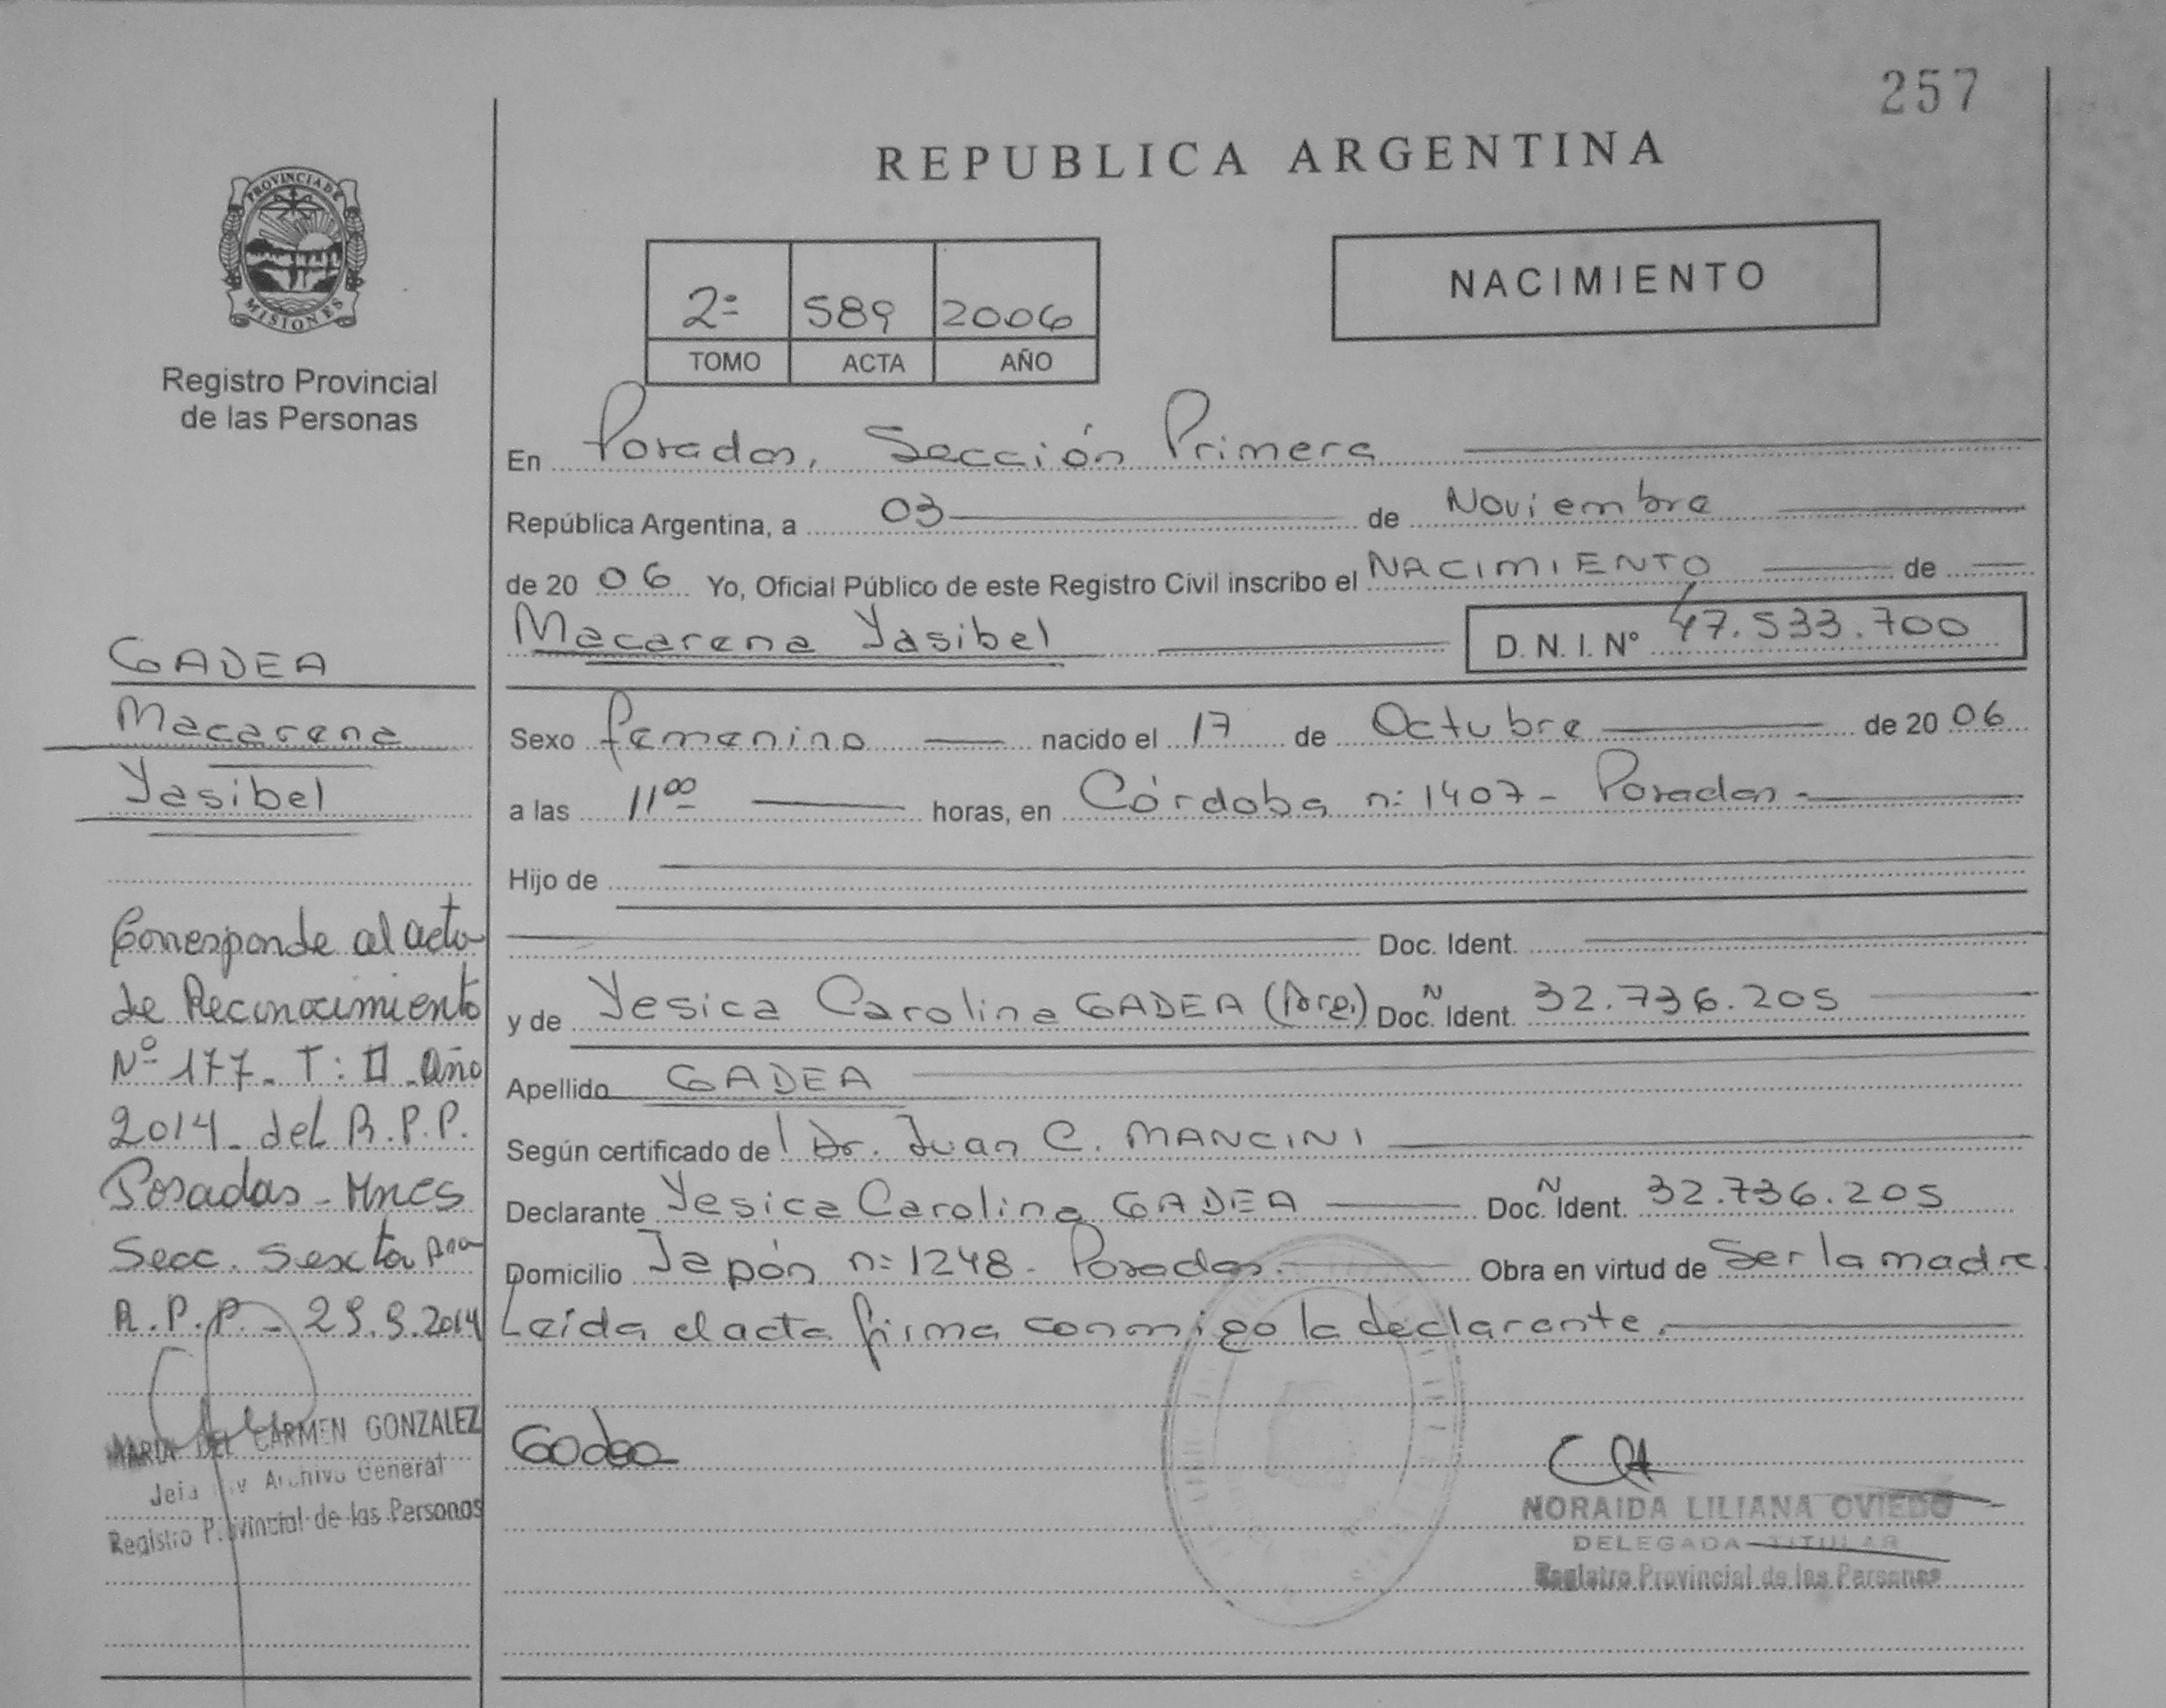 257
REPUBLICA ARGENTINA
PROVINCIA DE
MISIONES
Registro Provincial
de las Personas
2º 589 2006
TOMO ACTA AÑO
NACIMIENTO
En Posadas, Sección Primera
República Argentina, a 03 de Noviembre
de 20 06 Yo, Oficial Público de este Registro Civil inscribo el NACIMIENTO de
Macarena Yasibel D. N. I. Nº 47.533.700
Sexo femenino nacido el 17 de Octubre de 20 06
a las 11 00 horas, en Córdoba nº 1407 - Posadas -
Hijo de
Doc. Ident.
y de Yesica Carolina GADEA (Arg.) Doc. N Ident. 32.736.205
Apellido GADEA
Según certificado de l Dr. Juan C. MANCINI
Declarante Yesica Carolina GADEA Doc. N Ident. 32.736.205
Domicilio Japón nº 1248 - Posadas. Obra en virtud de Ser la madre
Leída el acta firma conmigo la declarante.
GADEA
Macarena
Yasibel
Corresponde al acta
de Reconocimiento
Nº 177 - T: II - Año
2014 - del R.P.P.
Posadas - Mnes
Secc. Sexta
R.P.P. - 29.9.2014
MARIA DEL CARMEN GONZALEZ
Archivo General
Registro Provincial de las Personas
Gadea
NORAIDA LILIANA OVIEDO
DELEGADA TITULAR
Registro Provincial de las Personas